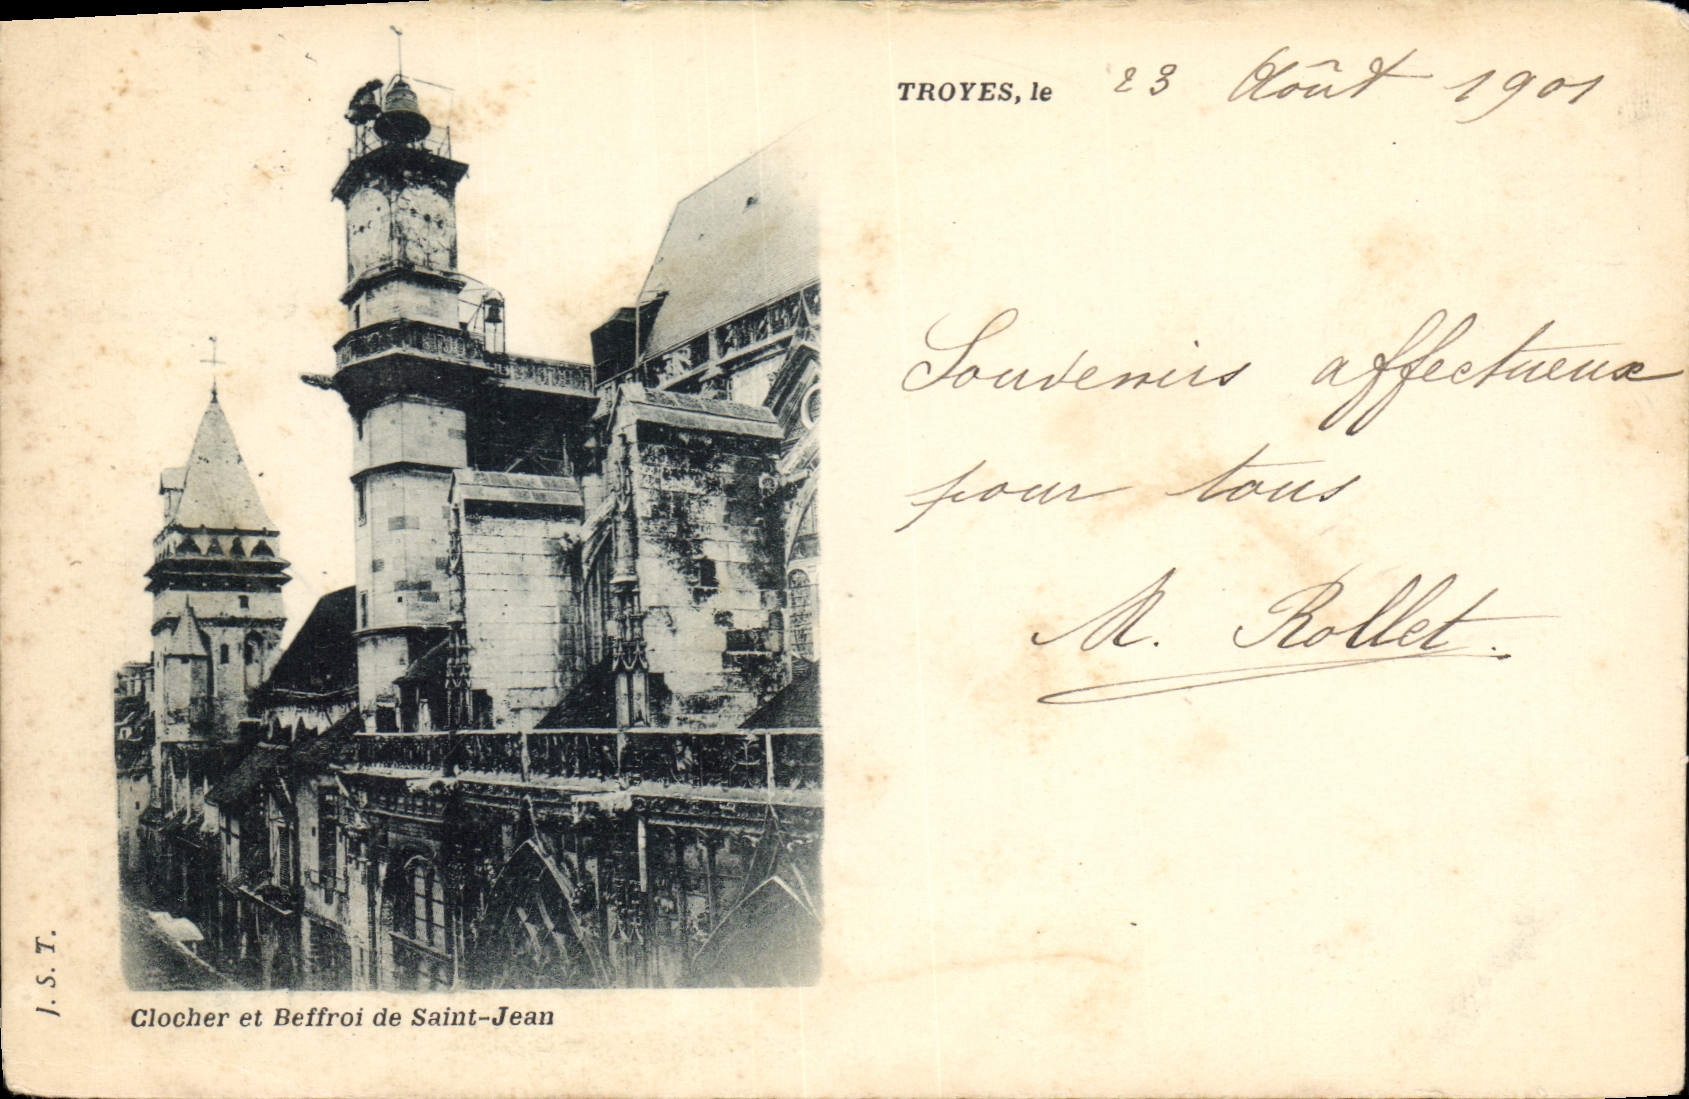 TROYES, le 23 Août 1901
Souvenirs affectueux
pour tous
M. Rollet.
Clocher et Beffroi de Saint-Jean
J. S. T.